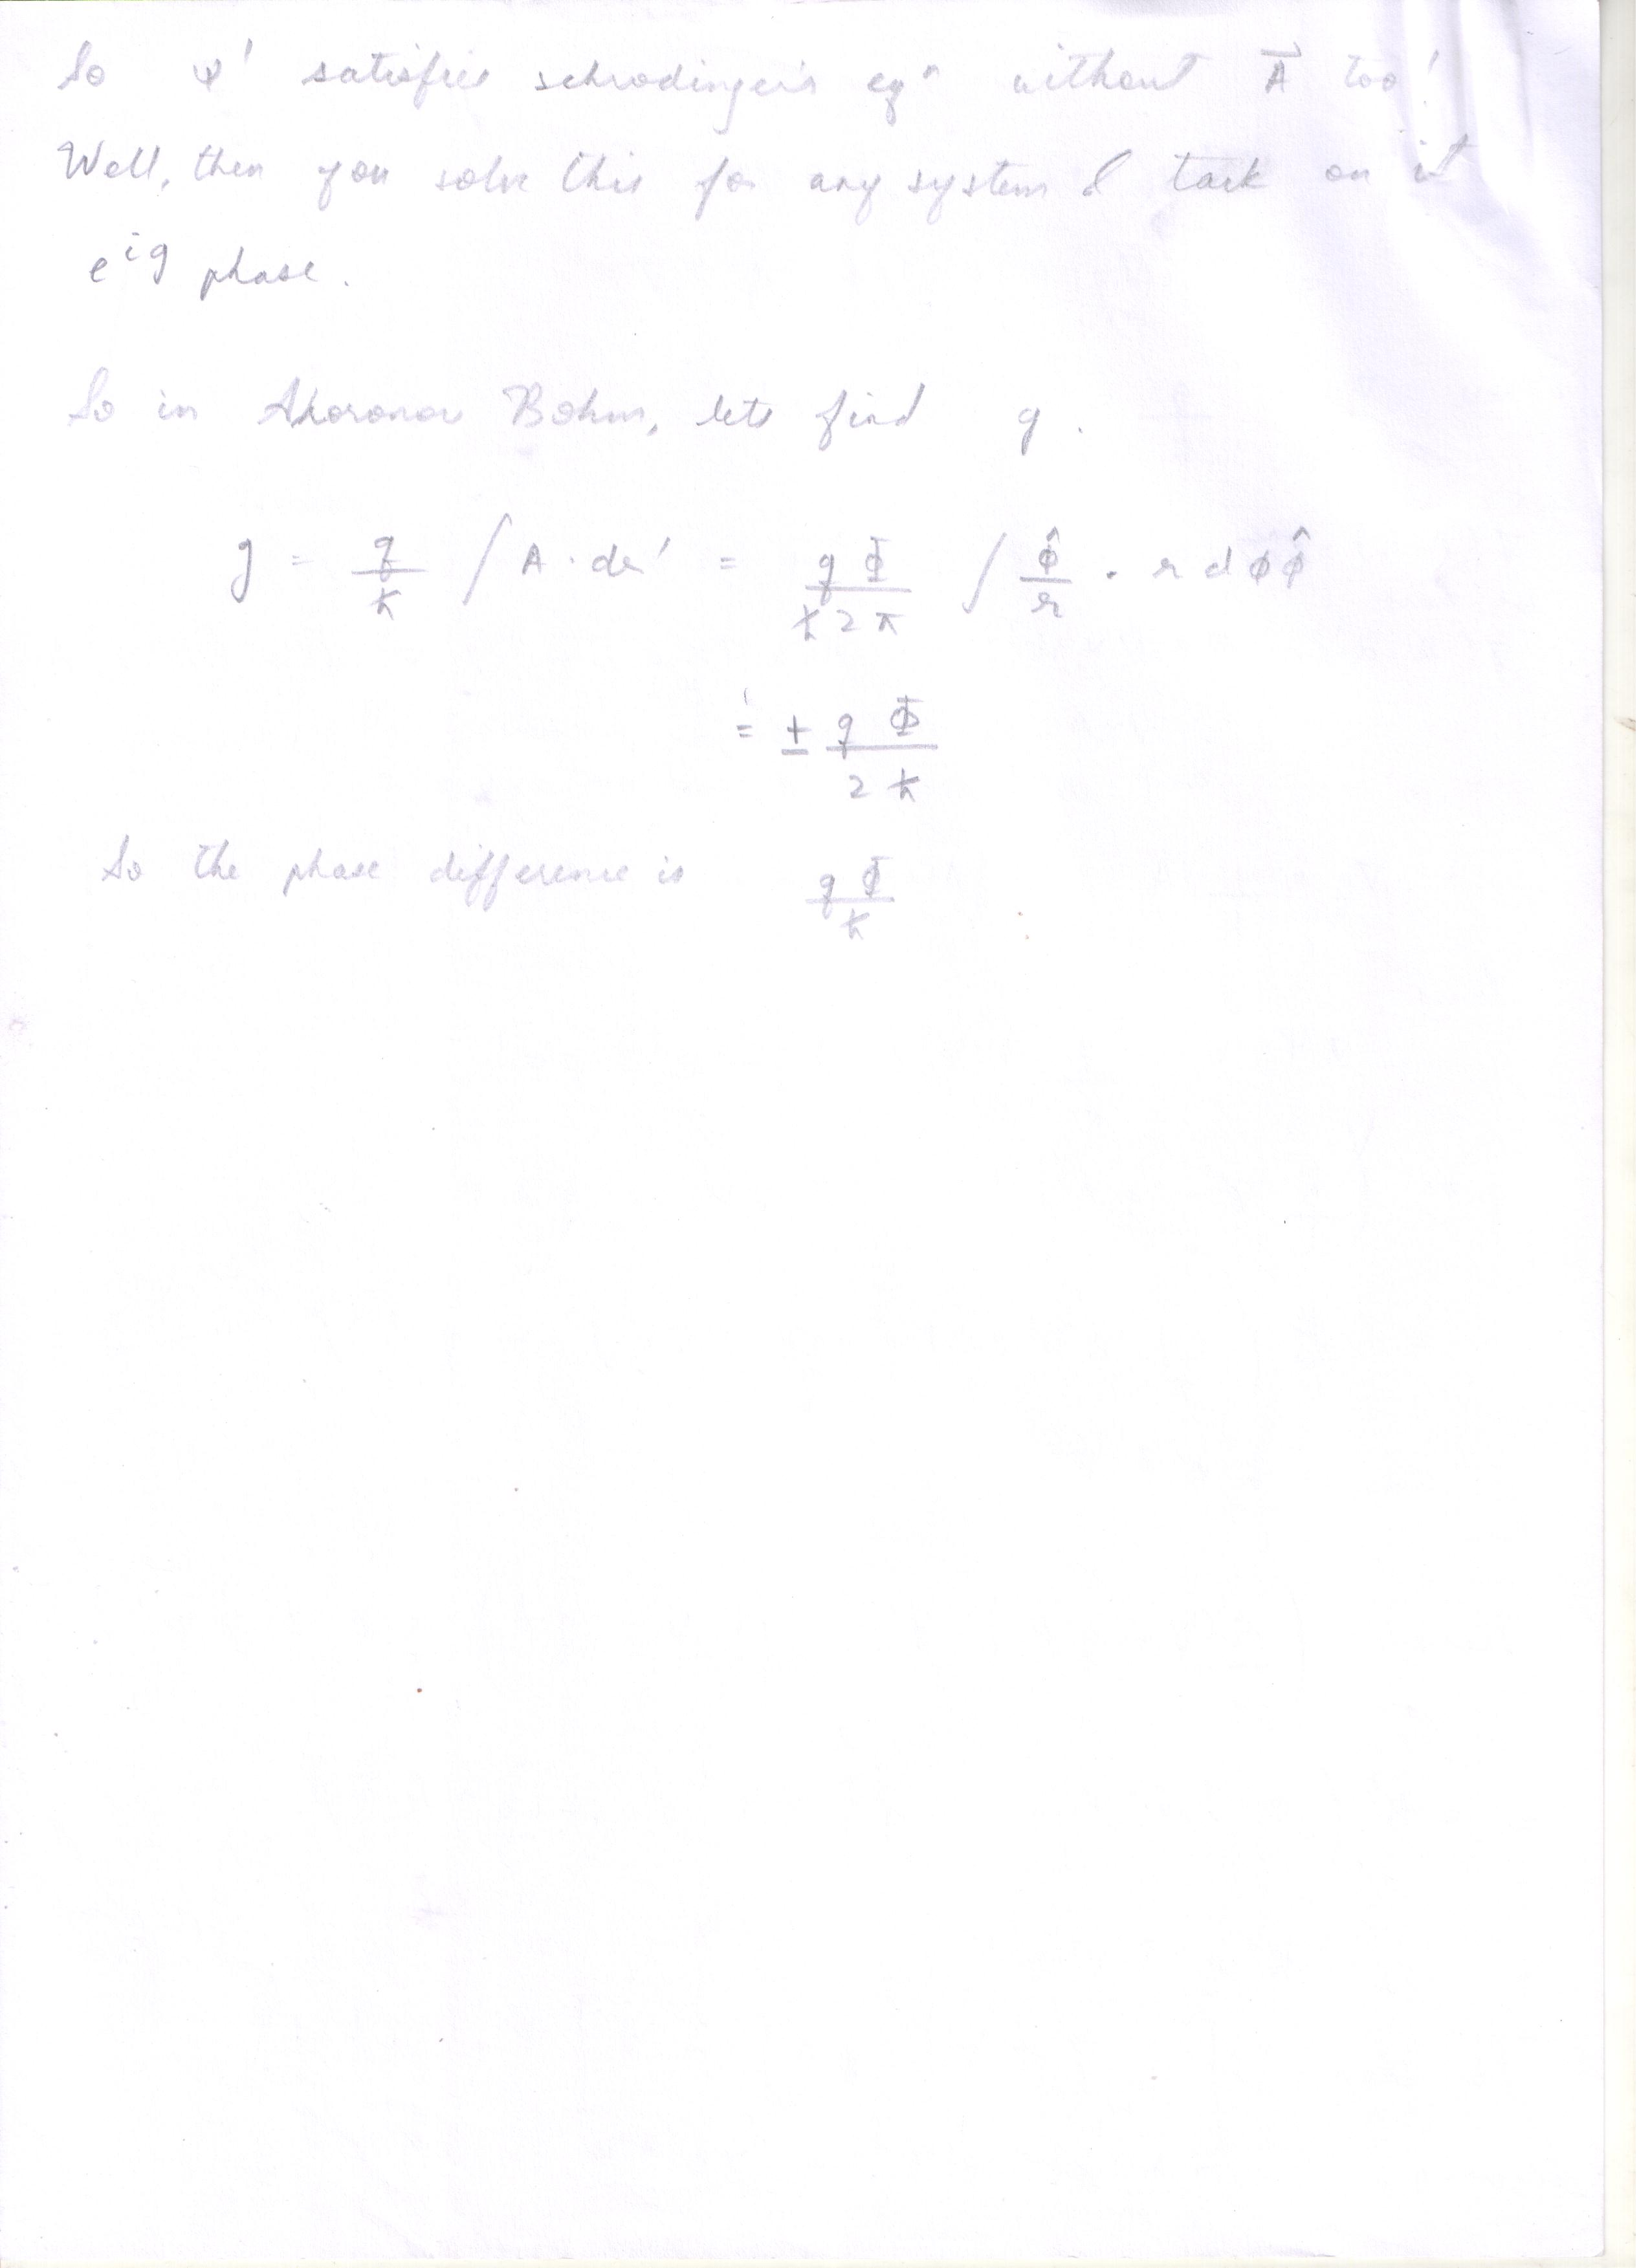 So ψ' satisfies schrodinger's eqⁿ without A⃗ too!
Well, then you solve this for any system & tack on it
e^{ig} phase.
So in Ahoronov Bohm, lets find g.
g = q/ħ ∫ A · dr' = qΦ/ħ2π ∫ φ̂/r · r dφ φ̂
= ± qΦ/2ħ
So the phase difference is qΦ/ħ